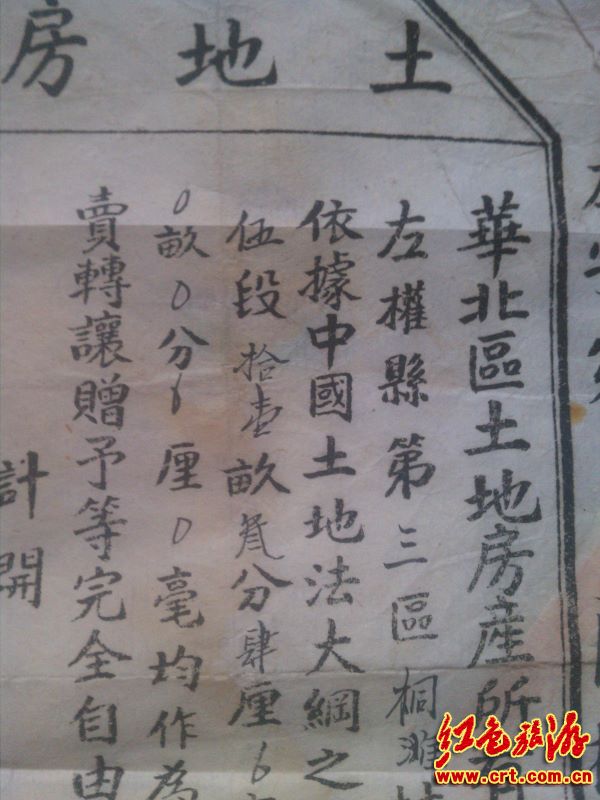 土地房
華北區土地房產所有
左權縣第三區桐灘
依據中國土地法大綱之
伍段拾壹畝叁分肆厘6
0畝0分6厘0毫均作為
賣轉讓贈予等完全自由
計開
红色旅游
www.crt.com.cn